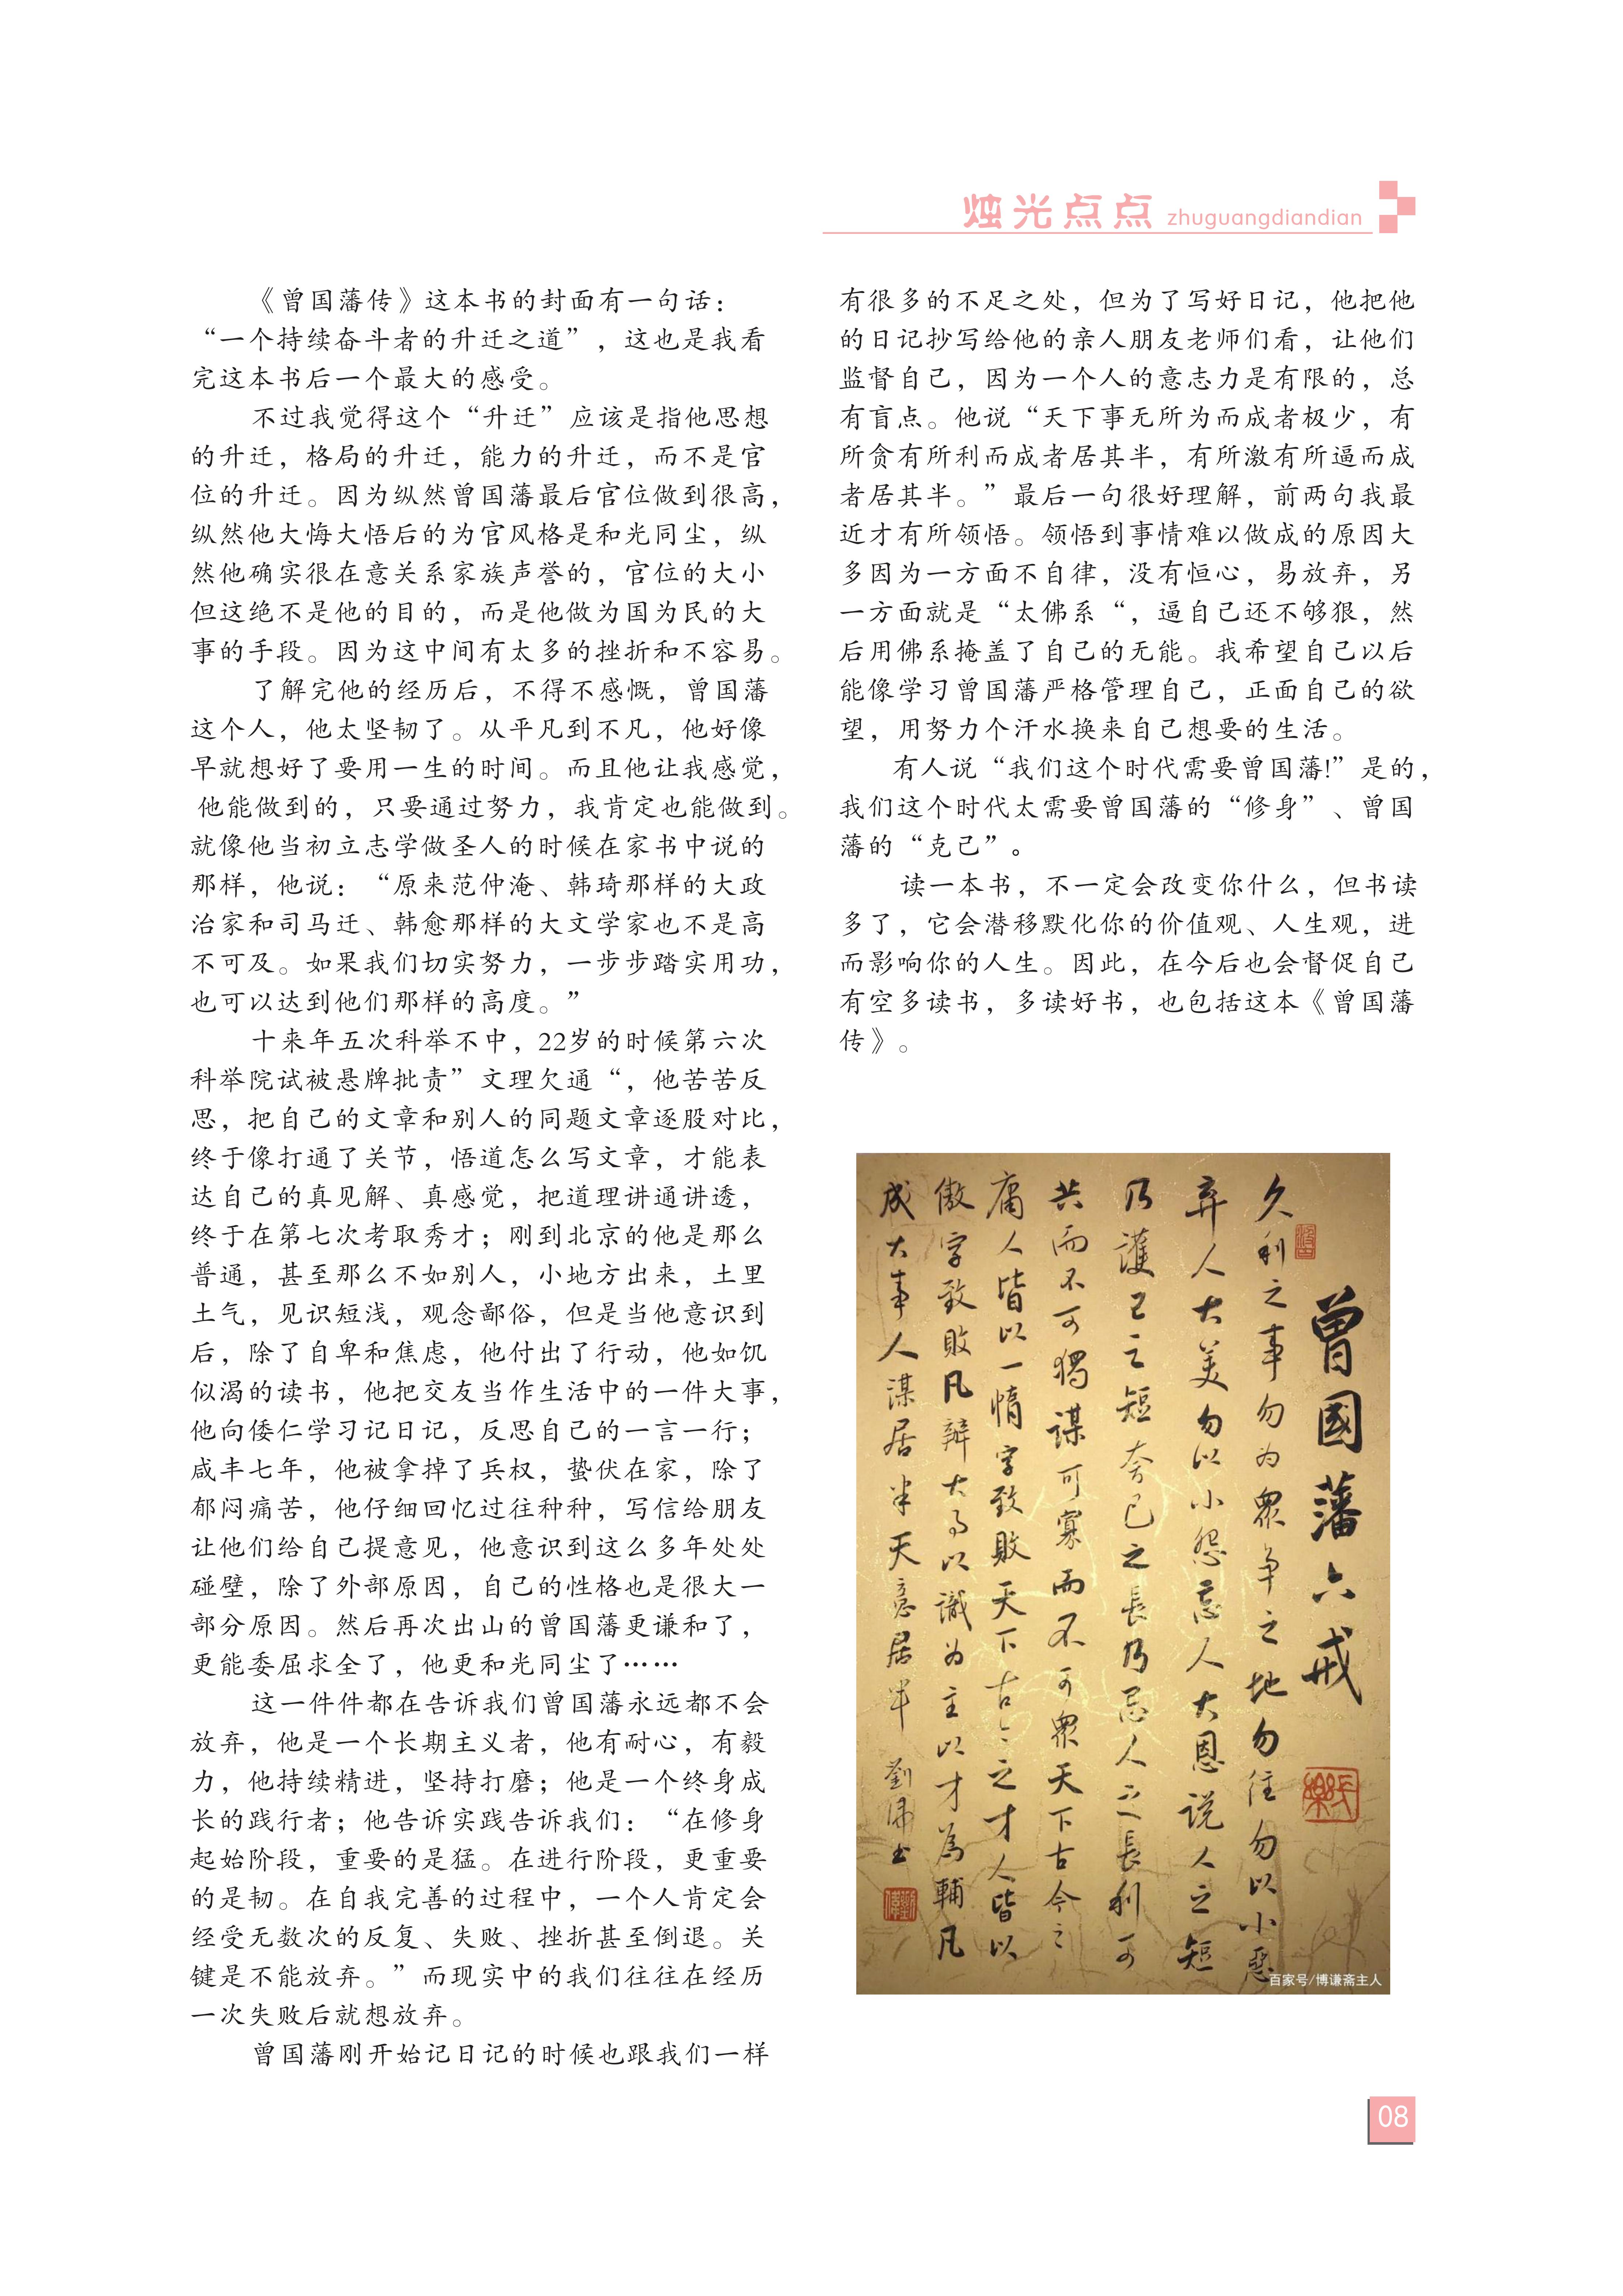 烛光点点 zhuguangdiandian
《曾国藩传》这本书的封面有一句话：
“一个持续奋斗者的升迁之道”，这也是我看
完这本书后一个最大的感受。
不过我觉得这个“升迁”应该是指他思想
的升迁，格局的升迁，能力的升迁，而不是官
位的升迁。因为纵然曾国藩最后官位做到很高，
纵然他大悔大悟后的为官风格是和光同尘，纵
然他确实很在意关系家族声誉的，官位的大小
但这绝不是他的目的，而是他做为国为民的大
事的手段。因为这中间有太多的挫折和不容易。
了解完他的经历后，不得不感慨，曾国藩
这个人，他太坚韧了。从平凡到不凡，他好像
早就想好了要用一生的时间。而且他让我感觉，
他能做到的，只要通过努力，我肯定也能做到。
就像他当初立志学做圣人的时候在家书中说的
那样，他说：“原来范仲淹、韩琦那样的大政
治家和司马迁、韩愈那样的大文学家也不是高
不可及。如果我们切实努力，一步步踏实用功，
也可以达到他们那样的高度。”
十来年五次科举不中，22岁的时候第六次
科举院试被悬牌批责”文理欠通“，他苦苦反
思，把自己的文章和别人的同题文章逐股对比，
终于像打通了关节，悟道怎么写文章，才能表
达自己的真见解、真感觉，把道理讲通讲透，
终于在第七次考取秀才；刚到北京的他是那么
普通，甚至那么不如别人，小地方出来，土里
土气，见识短浅，观念鄙俗，但是当他意识到
后，除了自卑和焦虑，他付出了行动，他如饥
似渴的读书，他把交友当作生活中的一件大事，
他向倭仁学习记日记，反思自己的一言一行；
咸丰七年，他被拿掉了兵权，蛰伏在家，除了
郁闷痛苦，他仔细回忆过往种种，写信给朋友
让他们给自己提意见，他意识到这么多年处处
碰壁，除了外部原因，自己的性格也是很大一
部分原因。然后再次出山的曾国藩更谦和了，
更能委屈求全了，他更和光同尘了……
这一件件都在告诉我们曾国藩永远都不会
放弃，他是一个长期主义者，他有耐心，有毅
力，他持续精进，坚持打磨；他是一个终身成
长的践行者；他告诉实践告诉我们：“在修身
起始阶段，重要的是猛。在进行阶段，更重要
的是韧。在自我完善的过程中，一个人肯定会
经受无数次的反复、失败、挫折甚至倒退。关
键是不能放弃。”而现实中的我们往往在经历
一次失败后就想放弃。
曾国藩刚开始记日记的时候也跟我们一样
有很多的不足之处，但为了写好日记，他把他
的日记抄写给他的亲人朋友老师们看，让他们
监督自己，因为一个人的意志力是有限的，总
有盲点。他说“天下事无所为而成者极少，有
所贪有所利而成者居其半，有所激有所逼而成
者居其半。”最后一句很好理解，前两句我最
近才有所领悟。领悟到事情难以做成的原因大
多因为一方面不自律，没有恒心，易放弃，另
一方面就是“太佛系“，逼自己还不够狠，然
后用佛系掩盖了自己的无能。我希望自己以后
能像学习曾国藩严格管理自己，正面自己的欲
望，用努力个汗水换来自己想要的生活。
有人说“我们这个时代需要曾国藩!”是的，
我们这个时代太需要曾国藩的“修身”、曾国
藩的“克己”。
读一本书，不一定会改变你什么，但书读
多了，它会潜移默化你的价值观、人生观，进
而影响你的人生。因此，在今后也会督促自己
有空多读书，多读好书，也包括这本《曾国藩
传》。
曾國藩六戒
久利之事勿为眾争之地勿往勿以小惡
弃人大美勿以小怨忘人大恩说人之短
乃護己之短夸己之長乃忌人之長利可
共而不可獨謀可寡而不可眾天下古今之
庸人皆以一惰字致敗天下古今之才人皆以
傲字致敗凡辦大事以識为主以才為輔凡
成大事人謀居半天意居半 劉佛书
百家号/博谦斋主人
08